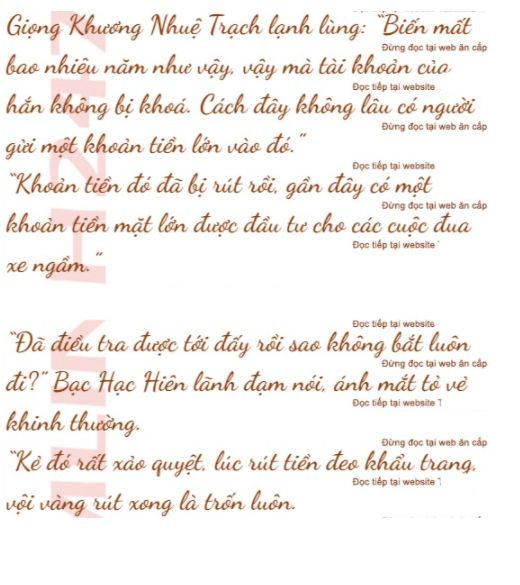 Giọng Khương Nhuệ Trạch lạnh lùng: "Biến mất
Đừng đọc tại web ăn cắp
bao nhiêu năm như vậy, vậy mà tài khoản của
Đọc tiếp tại website
hắn không bị khoá. Cách đây không lâu có người
Đừng đọc tại web ăn cắp
gửi một khoản tiền lớn vào đó."
Đọc tiếp tại website
"Khoản tiền đó đã bị rút rồi, gần đây có một
Đừng đọc tại web ăn cắp
khoản tiền mặt lớn được đầu tư cho các cuộc đua
Đọc tiếp tại website
xe ngầm."
Đọc tiếp tại website
"Đã điều tra được tới đấy rồi sao không bắt luôn
Đừng đọc tại web ăn cắp
đi?" Bạc Hạc Hiên lãnh đạm nói, ánh mắt tỏ vẻ
Đọc tiếp tại website
khinh thường.
Đừng đọc tại web ăn cắp
"Kẻ đó rất xảo quyệt, lúc rút tiền đeo khẩu trang,
Đọc tiếp tại website
vội vàng rút xong là trốn luôn.